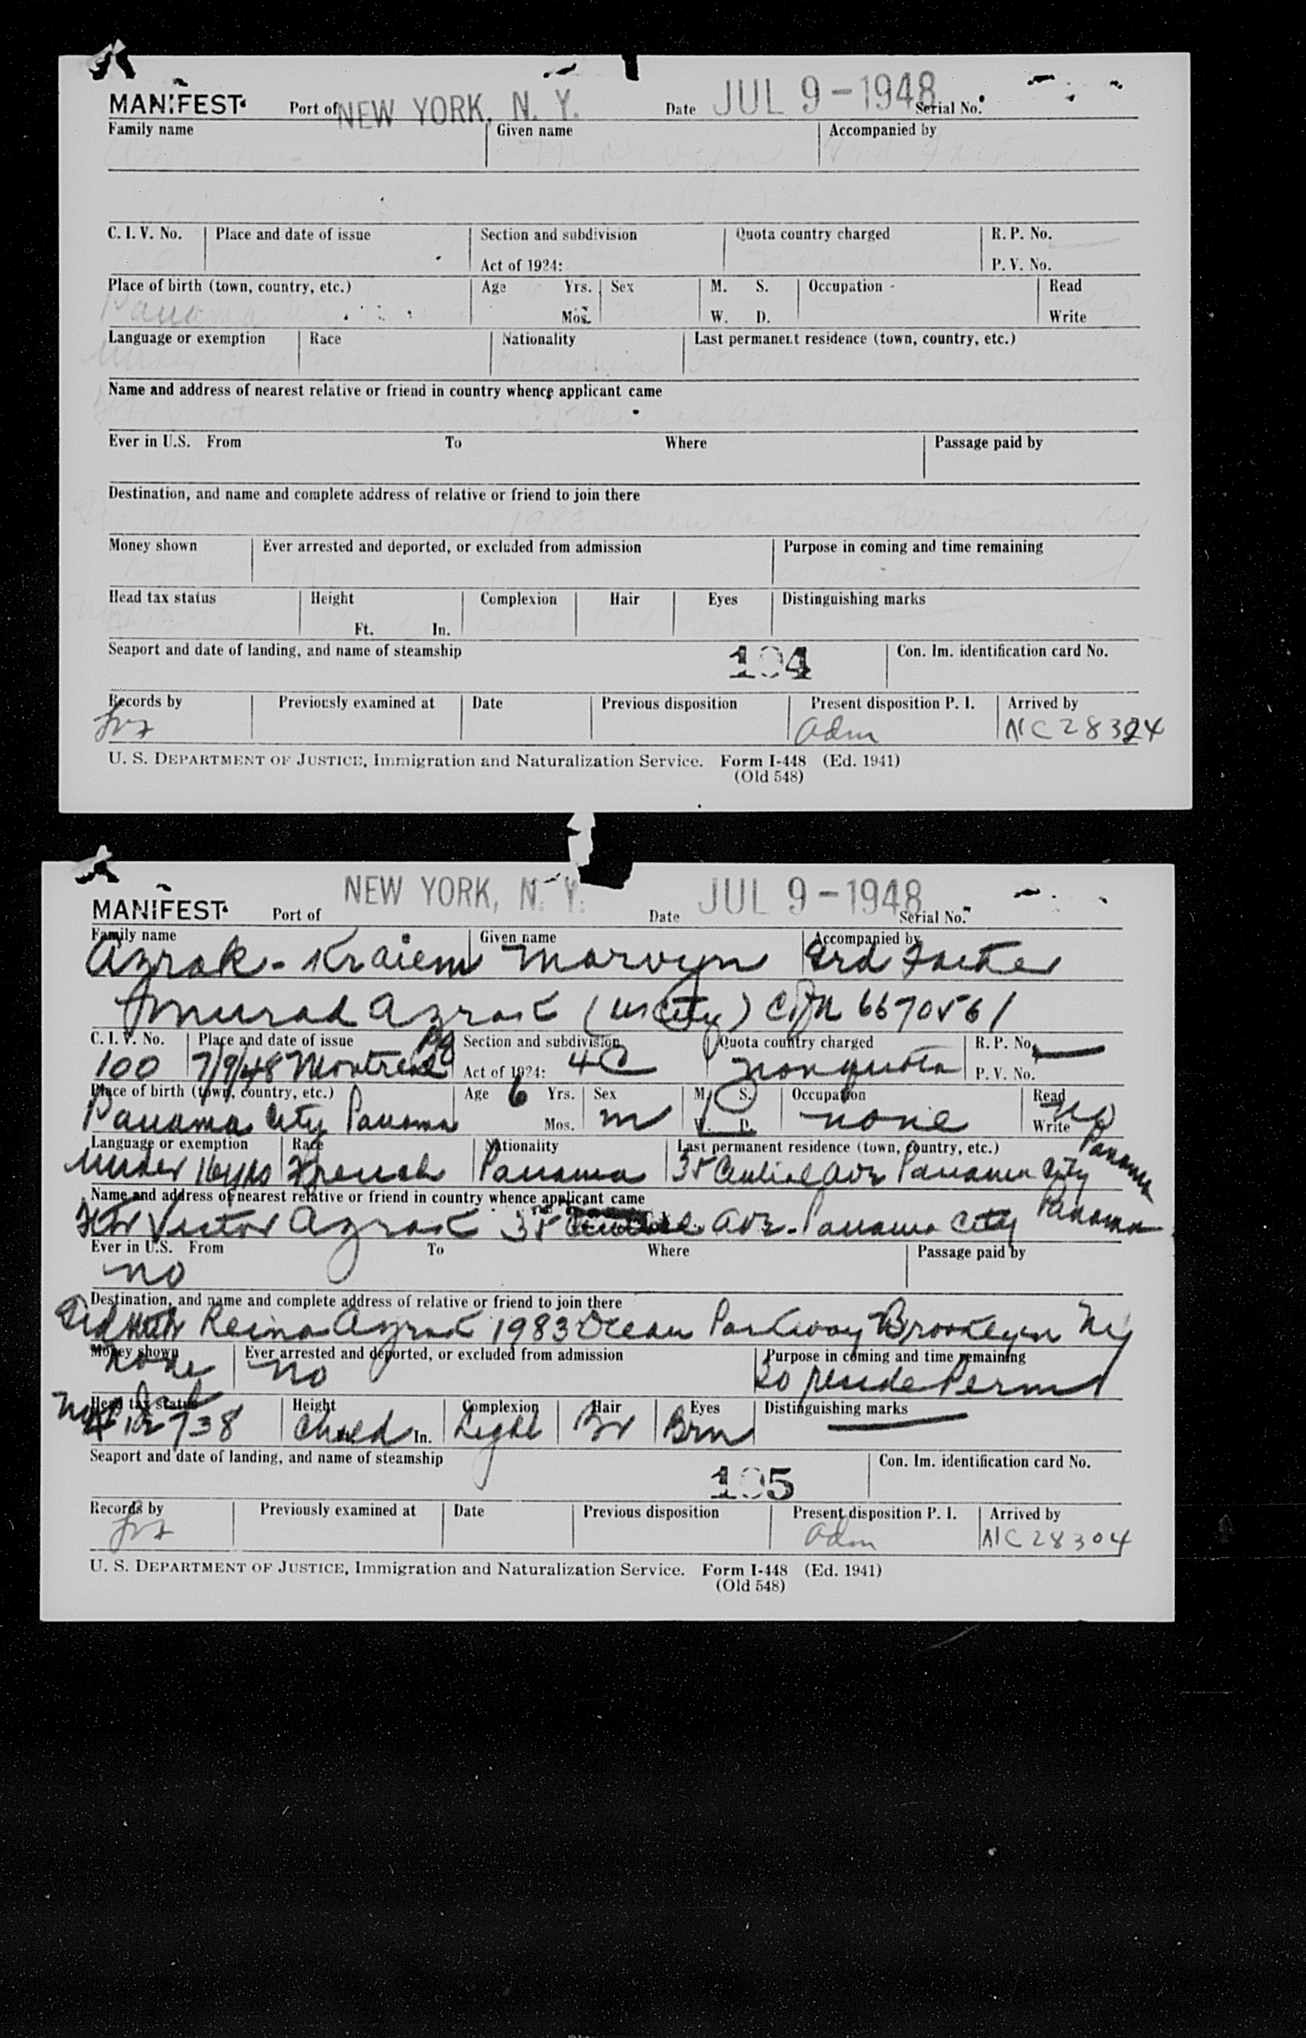 MANIFEST Port of NEW YORK, N. Y. Date JUL 9 - 1948 Serial No.
Family name Given name Accompanied by
C. I. V. No. Place and date of issue Section and subdivision Quota country charged R. P. No.
Act of 1924: P. V. No.
Place of birth (town, country, etc.) Age Yrs. Sex M. S. Occupation Read
Mos. W. D. Write
Language or exemption Race Nationality Last permanent residence (town, country, etc.)
Name and address of nearest relative or friend in country whence applicant came
Ever in U.S. From To Where Passage paid by
Destination, and name and complete address of relative or friend to join there
Money shown Ever arrested and deported, or excluded from admission Purpose in coming and time remaining
Head tax status Height Complexion Hair Eyes Distinguishing marks
Ft. In.
Seaport and date of landing, and name of steamship 194 Con. Im. identification card No.
Records by Previously examined at Date Previous disposition Present disposition P. I. Arrived by
adm NC 28304
U. S. DEPARTMENT OF JUSTICE, Immigration and Naturalization Service. Form I-448 (Ed. 1941)
(Old 548)
MANIFEST Port of NEW YORK, N. Y. Date JUL 9 - 1948 Serial No.
Family name Given name Accompanied by
Azrak - Kraiem Morvyn Grd Father
Murad Azrak (US City) 6670561
C. I. V. No. Place and date of issue Section and subdivision Quota country charged R. P. No.
100 7/9/48 Montreal PQ Act of 1924: 4C nonquota P. V. No.
Place of birth (town, country, etc.) Age 6 Yrs. Sex M. S. Occupation Read
Panama City Panama Mos. m W. D. none Write no
Language or exemption Race Nationality Last permanent residence (town, country, etc.)
Under 16 yrs French Panama 35 Central Ave Panama City Panama
Name and address of nearest relative or friend in country whence applicant came
Victor Azrak 35 Ave. Panama City Panama
Ever in U.S. From To Where Passage paid by
no
Destination, and name and complete address of relative or friend to join there
Grd Moth Reina Azrak 1983 Ocean Parkway Brooklyn NY
Money shown Ever arrested and deported, or excluded from admission Purpose in coming and time remaining
None no To reside Perm
Head tax status Height Complexion Hair Eyes Distinguishing marks
738 Child In. Light Br Brn
Seaport and date of landing, and name of steamship 195 Con. Im. identification card No.
Records by Previously examined at Date Previous disposition Present disposition P. I. Arrived by
adm NC 28304
U. S. DEPARTMENT OF JUSTICE, Immigration and Naturalization Service. Form I-448 (Ed. 1941)
(Old 548)